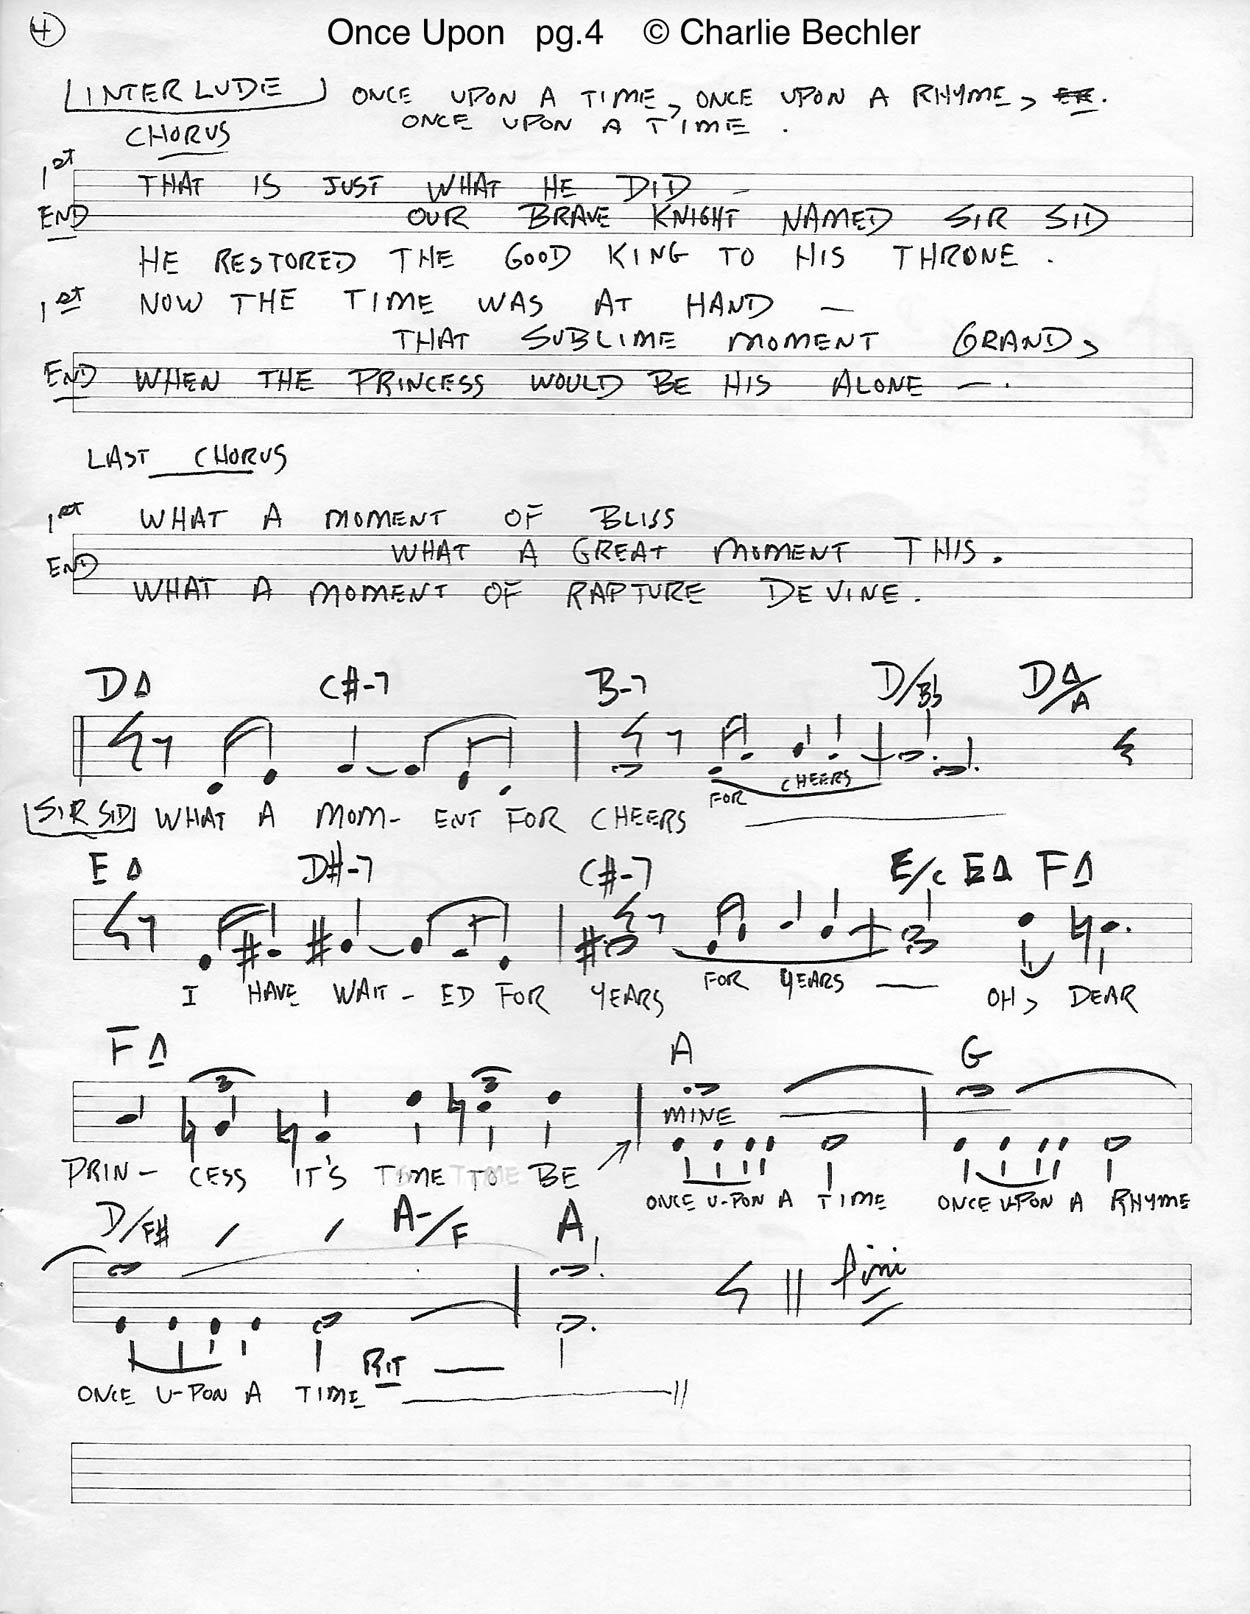 4 Once Upon pg.4 © Charlie Bechler
INTERLUDE ONCE UPON A TIME, ONCE UPON A RHYME,
ONCE UPON A TIME.
CHORUS
1st THAT IS JUST WHAT HE DID –
END OUR BRAVE KNIGHT NAMED SIR SID
HE RESTORED THE GOOD KING TO HIS THRONE.
1st NOW THE TIME WAS AT HAND –
THAT SUBLIME MOMENT GRAND,
END WHEN THE PRINCESS WOULD BE HIS ALONE –.
LAST CHORUS
1st WHAT A MOMENT OF BLISS
WHAT A GREAT MOMENT THIS.
END WHAT A MOMENT OF RAPTURE DEVINE.
DΔ C#-7 B-7 D/Bb DΔ/A
FOR CHEERS
SIR SID WHAT A MOM- ENT FOR CHEERS
EΔ D#-7 C#-7 E/C EΔ FΔ
I HAVE WAIT - ED FOR YEARS FOR YEARS — OH, DEAR
FΔ A G
3 3
MINE
PRIN- CESS IT'S TIME TO BE
ONCE U-PON A TIME ONCE UPON A RHYME
D/F# / / A-/F A
fini
RIT
ONCE U-PON A TIME